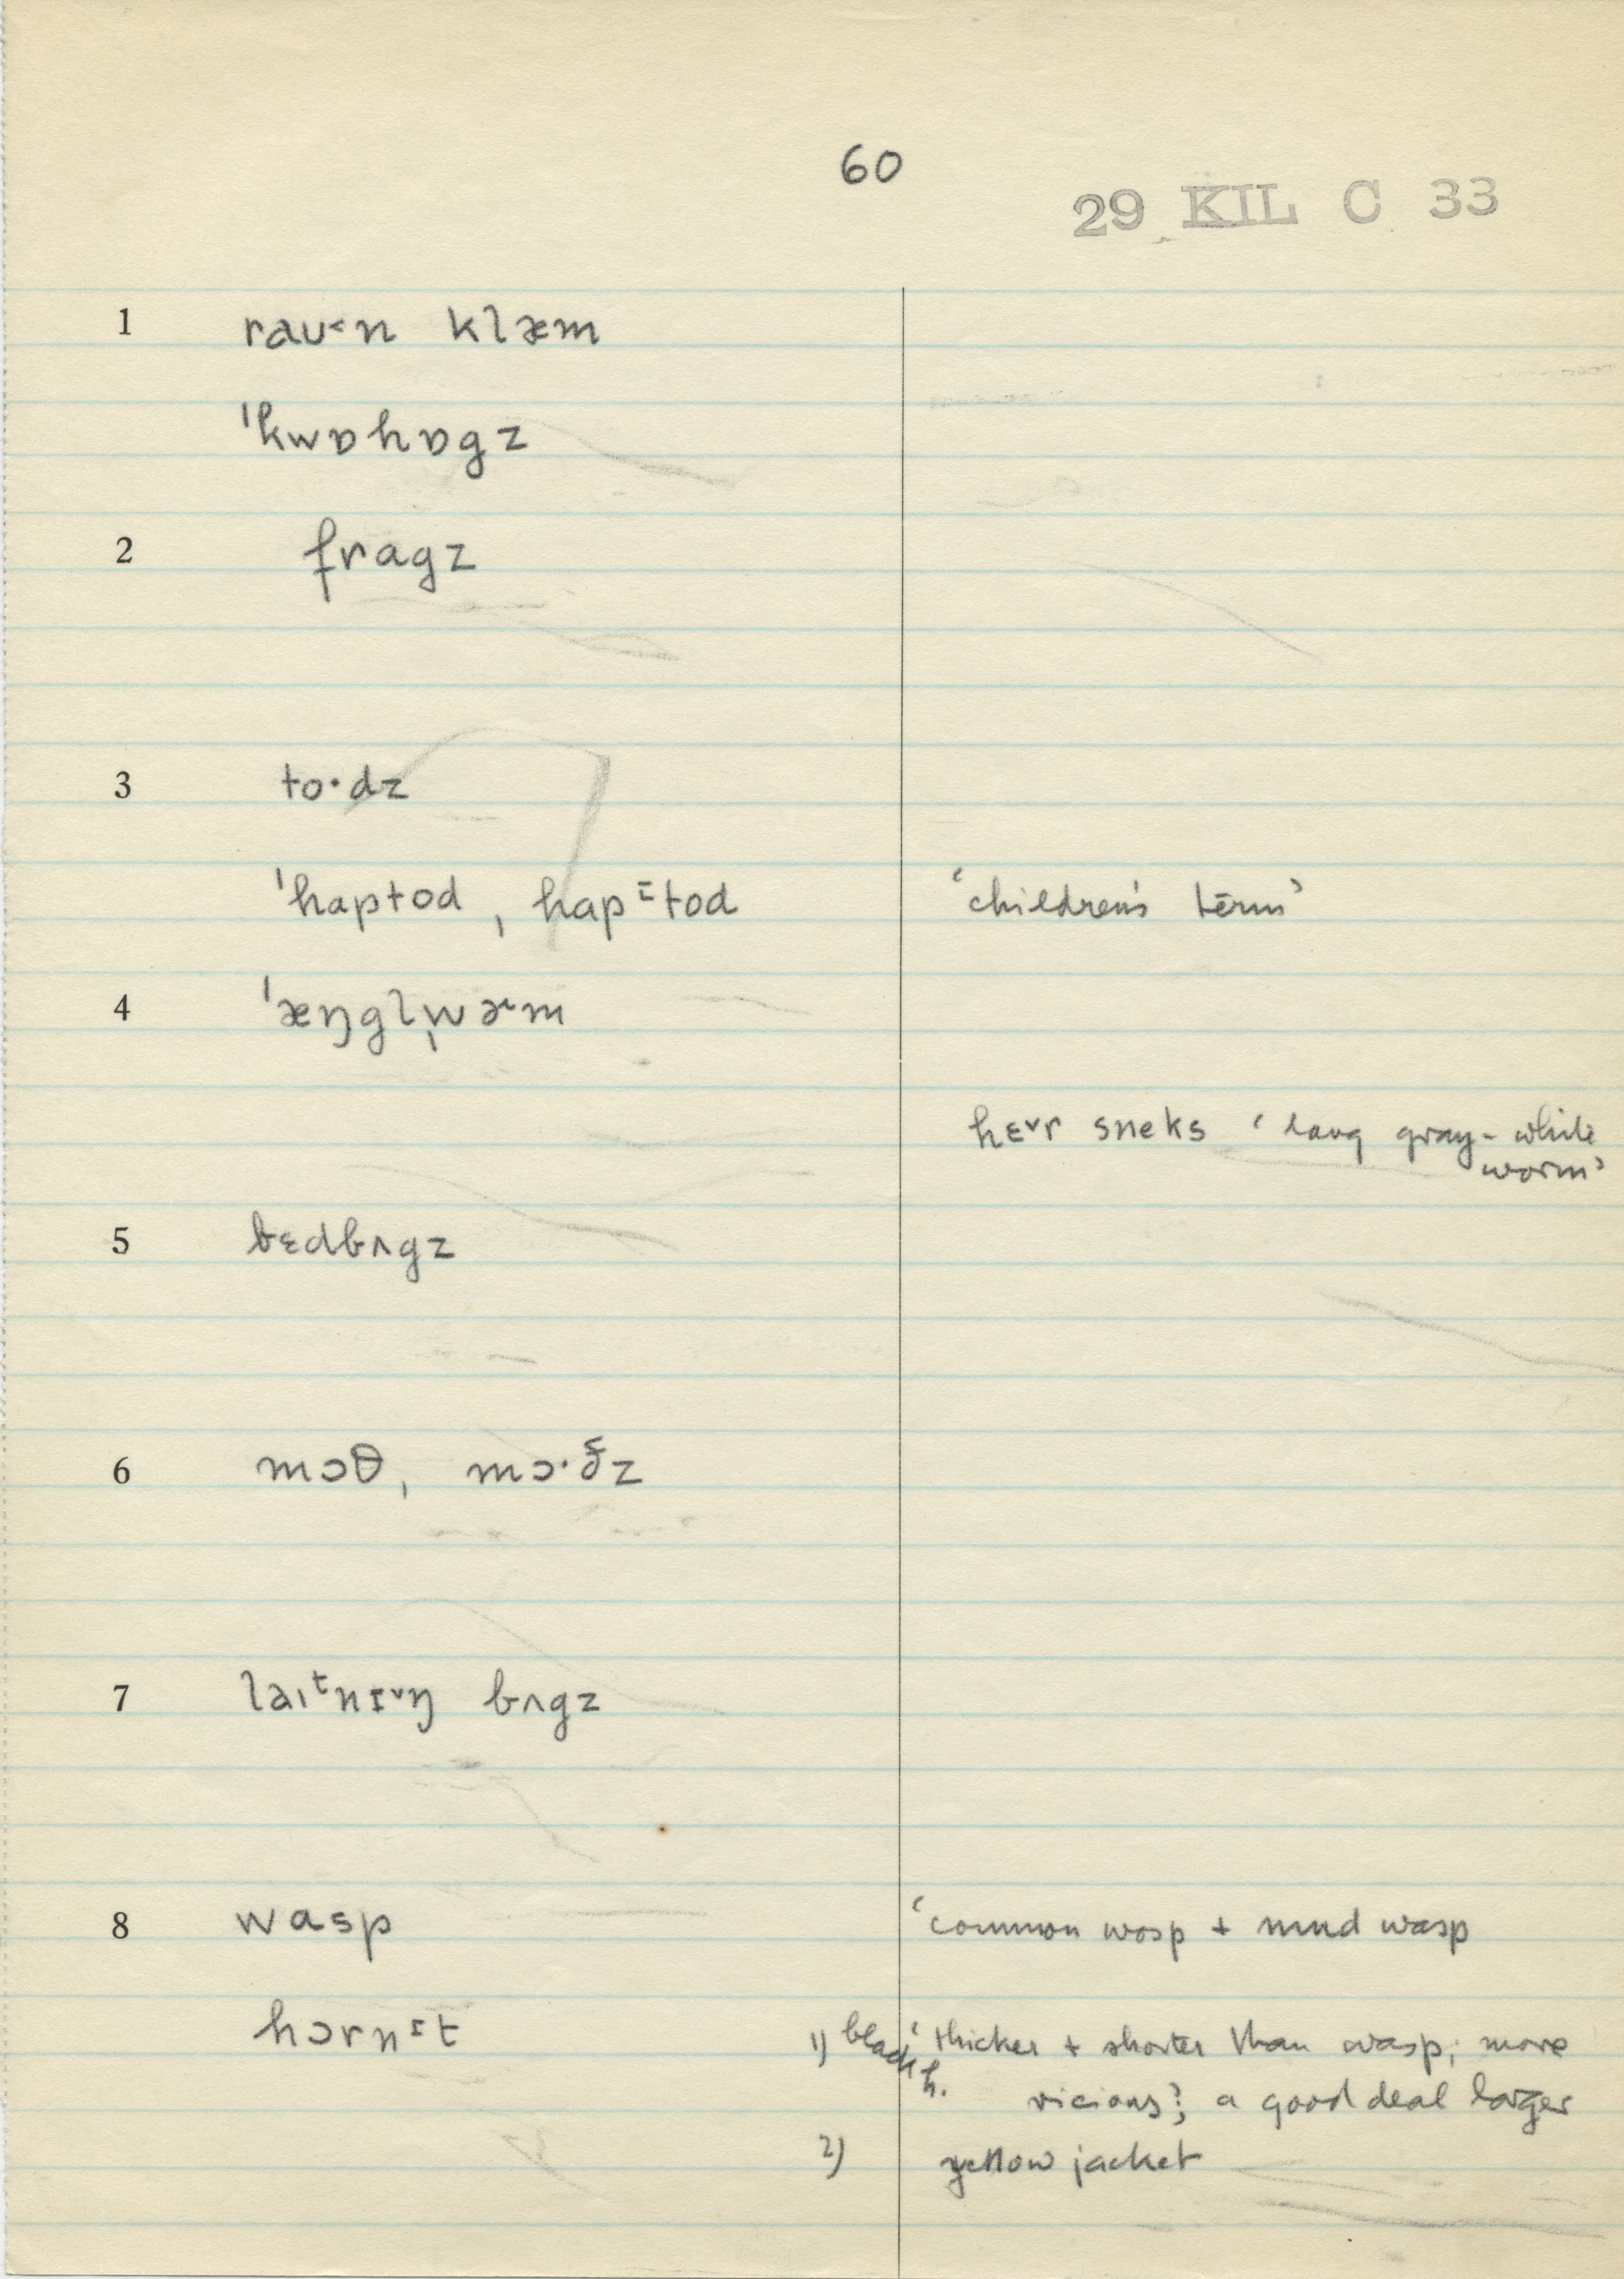 60
29 KIL C 33
1 raʊ˂n klæm
ˈkwɒhɒgz
2 fragz
3 to·dz
ˈhaptod, hapᴵtod ‘children's term’
4 ˈæŋgl̩wɚm
hɛ˅r sneks ‘long gray-white
worm’
5 bɛdbʌgz
6 mɔθ, mɔ·ðz
7 laɪᵗnɪ˅ŋ bʌgz
8 wasp ‘common wasp + mud wasp
hɔrnᴵt 1) black h. ‘thicker + shorter than wasp; more
vicious’; a good deal larger
2) yellow jacket